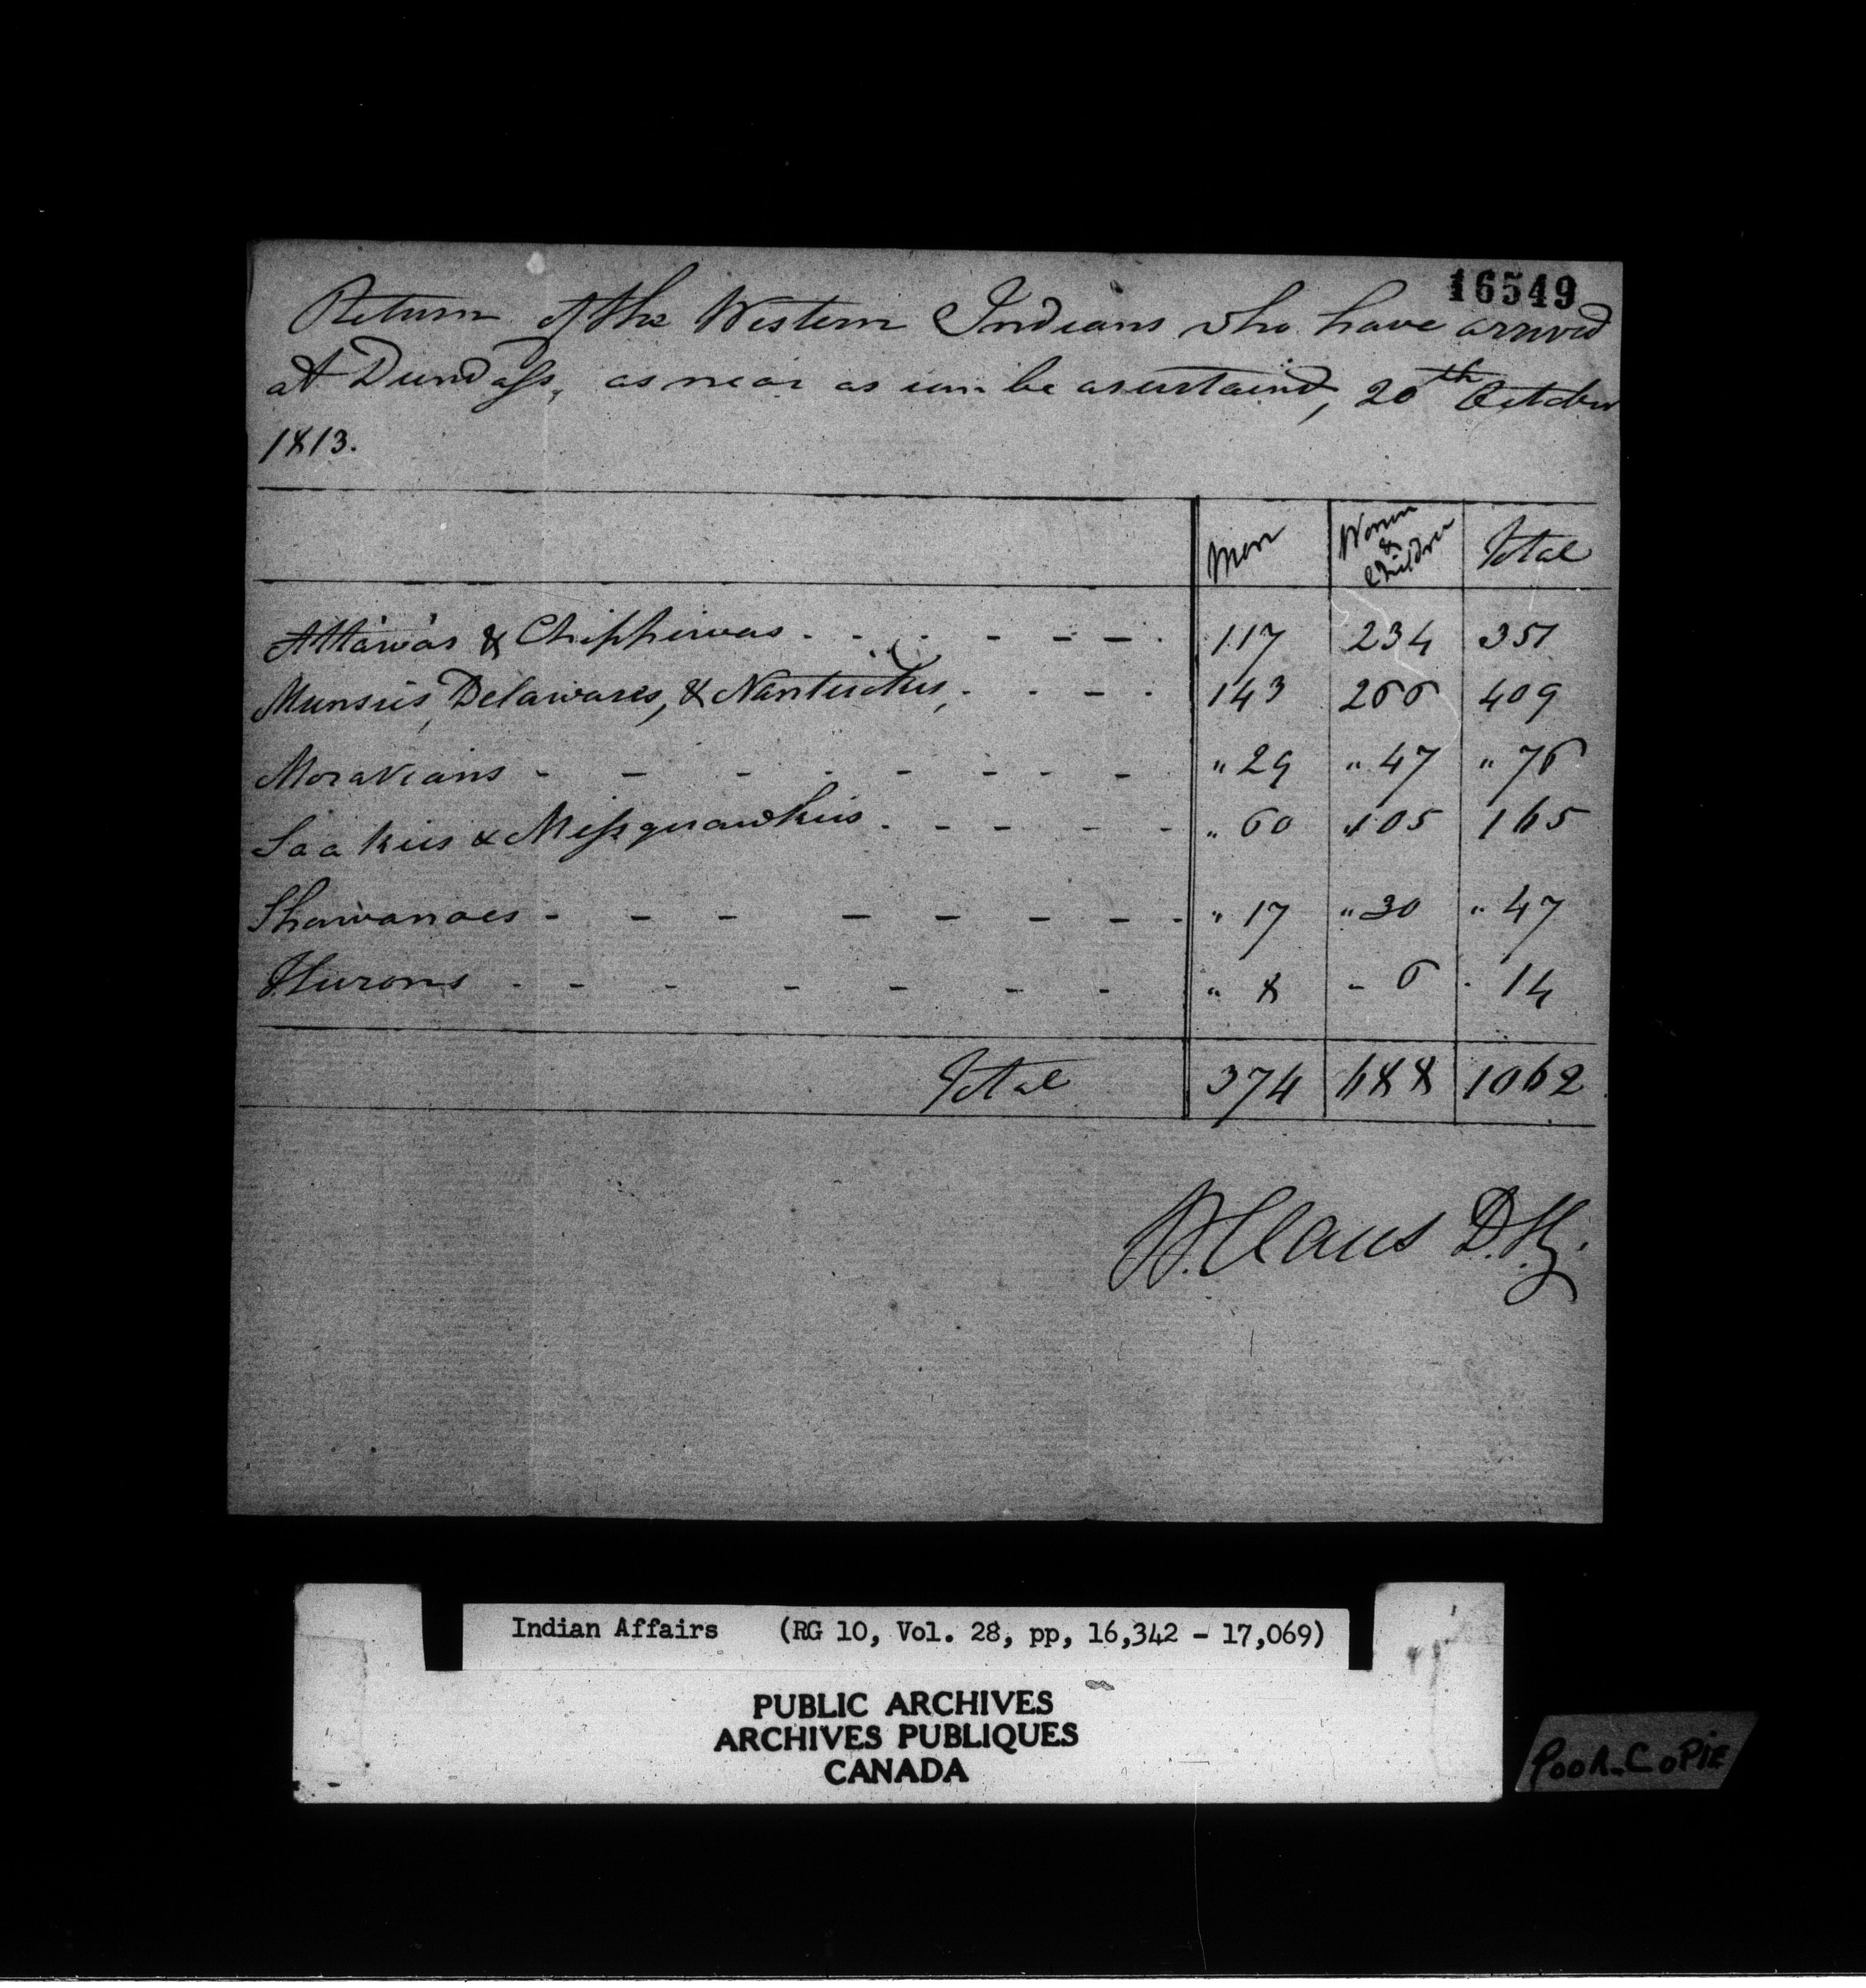 16549
Return of the Western Indians who have arrived
at Dundass, as near as can be asertaind, 20th October
1813.
Men Women & Children Total
Attawas & Chippewas 117 234 351
Munsies, Delawares, & Nantucokes, 143 266 409
Moravians " 29 " 47 " 76
Saakies & Missquawkies " 60 " 105 165
Shawanoes " 17 " 30 " 47
Hurons " 8 " 6 " 14
Total 374 688 1062
W. Claus D.S.G.
Indian Affairs (RG 10, Vol. 28, pp, 16,342 - 17,069)
PUBLIC ARCHIVES
ARCHIVES PUBLIQUES
CANADA
POOR COPIE